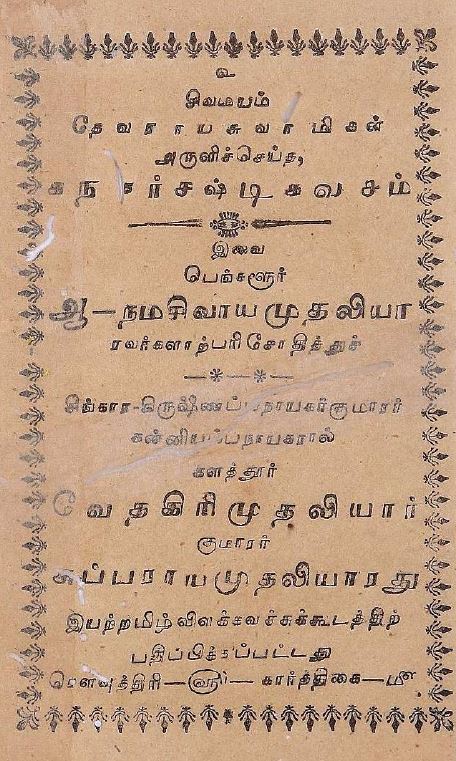 உ
சிவமயம்
தேவராயசுவாமிகள்
அருளிச்செய்த,
கந்தர்சஷ்டிகவசம்
இவை
பெங்களூர்
ஆ-நமசிவாயமுதலியா
ரவர்களாற்பரிசோதித்துச்
சிங்கார-கிருஷ்ணப்பநாயகர்குமாரர்
கன்னியப்பநாயகரால்
களத்தூர்
வேதகிரிமுதலியார்
குமாரர்
சுப்பராயமுதலியாரது
இயற்றமிழ்விளக்கவச்சுக்கூடத்திற்
பதிப்பிக்கப்பட்டது
௵ — கார்த்திகை — ௴